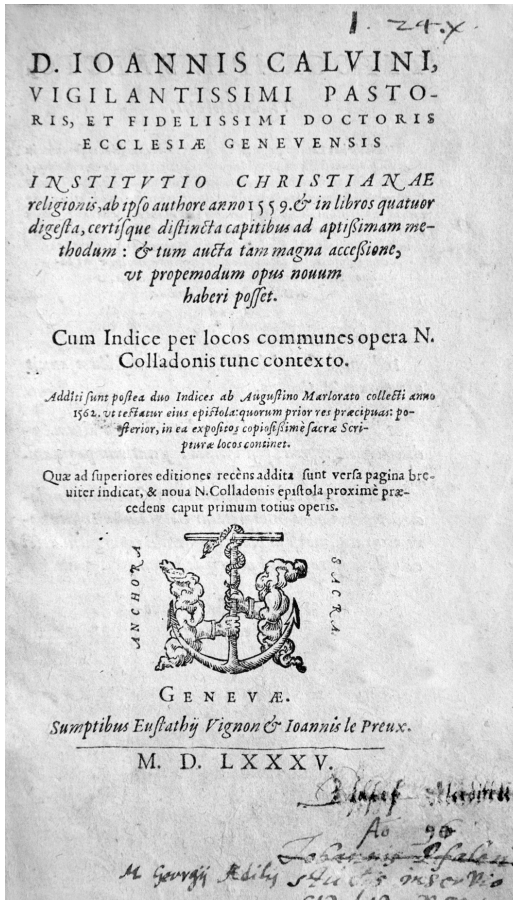 1. 24.x
D. IOANNIS CALVINI,
VIGILANTISSIMI PASTO-
RIS, ET FIDELISSIMI DOCTORIS
ECCLESIÆ GENEVENSIS
INSTITVTIO CHRISTIANAE
religionis, ab ipso authore anno 1559. & in libros quatuor
digesta, certísque distincta capitibus ad aptißimam me-
thodum: & tum aucta tam magna acceßione,
vt propemodum opus nouum
haberi posset.
Cum Indice per locos communes opera N.
Colladonis tunc contexto.
Additi sunt postea duo Indices ab Augustino Marlorato collecti anno
1562. vt testatur eius epistola: quorum prior res præcipuas: po-
sterior, in ea expositos copiosißimè sacræ Scri-
pturæ locos continet.
Quæ ad superiores editiones recèns addita sunt versa pagina bre-
uiter indicat, & noua N. Colladonis epistola proximè præ-
cedens caput primum totius operis.
ANCHORA
SACRA.
GENEVÆ.
Sumptibus Eustathij Vignon & Ioannis le Preux.
M. D. LXXXV.
Ao 96
M Georgij